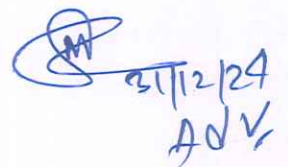 31/12/24
Adv.